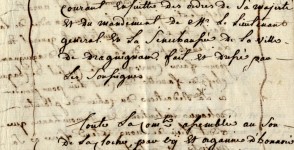 courant ensuitte des ordres de sa majesté
et du mandement de Mr le Lieutenant
general et La Senechaussée de La ville
de draguignan fait et dressé par
Les Sousignes
Toute La Comté assemblée au son
de La cloche par et organne d'honoré